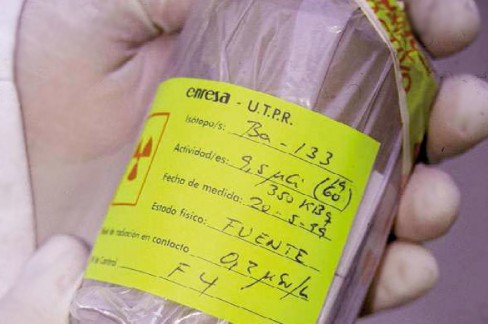 enresa - U.T.P.R.
Isótopo/s: Ba - 133
Actividad/es: 9,5 µCi (60)
350 KBq
Fecha de medida: 20-5-99
Estado físico: FUENTE
de radiación en contacto 0,3 µSv/h
Control F4